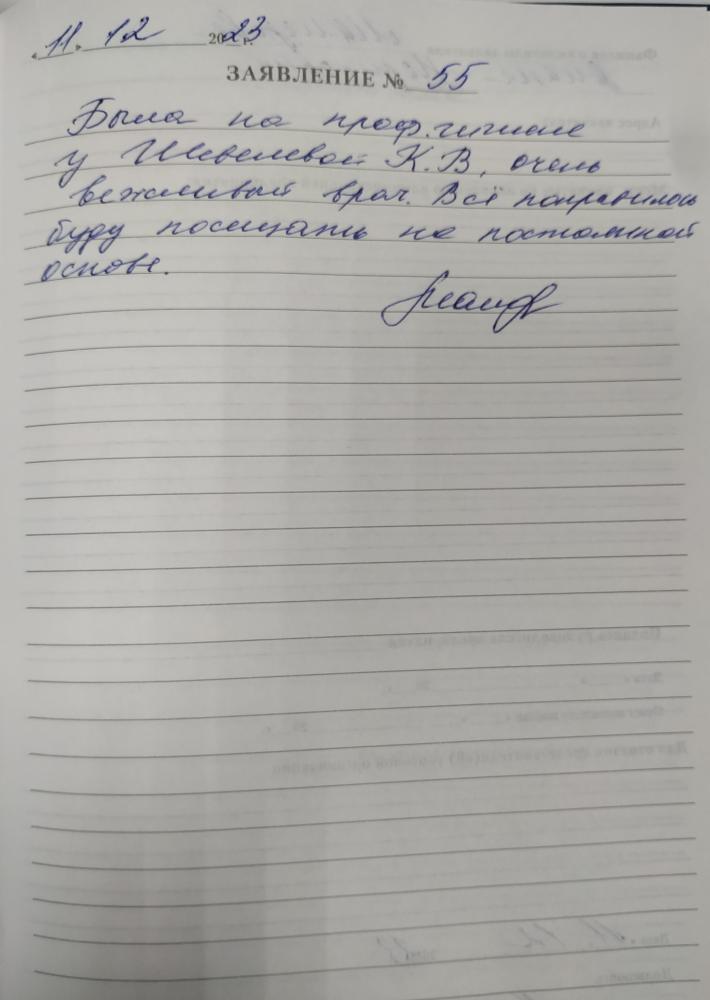 « 11 » 12 2023 г.
ЗАЯВЛЕНИЕ № 55
Была на проф.гигиене
у Шевелевой К.В, очень
вежливый врач. Всё понравилось
буду посещать на постоянной
основе.